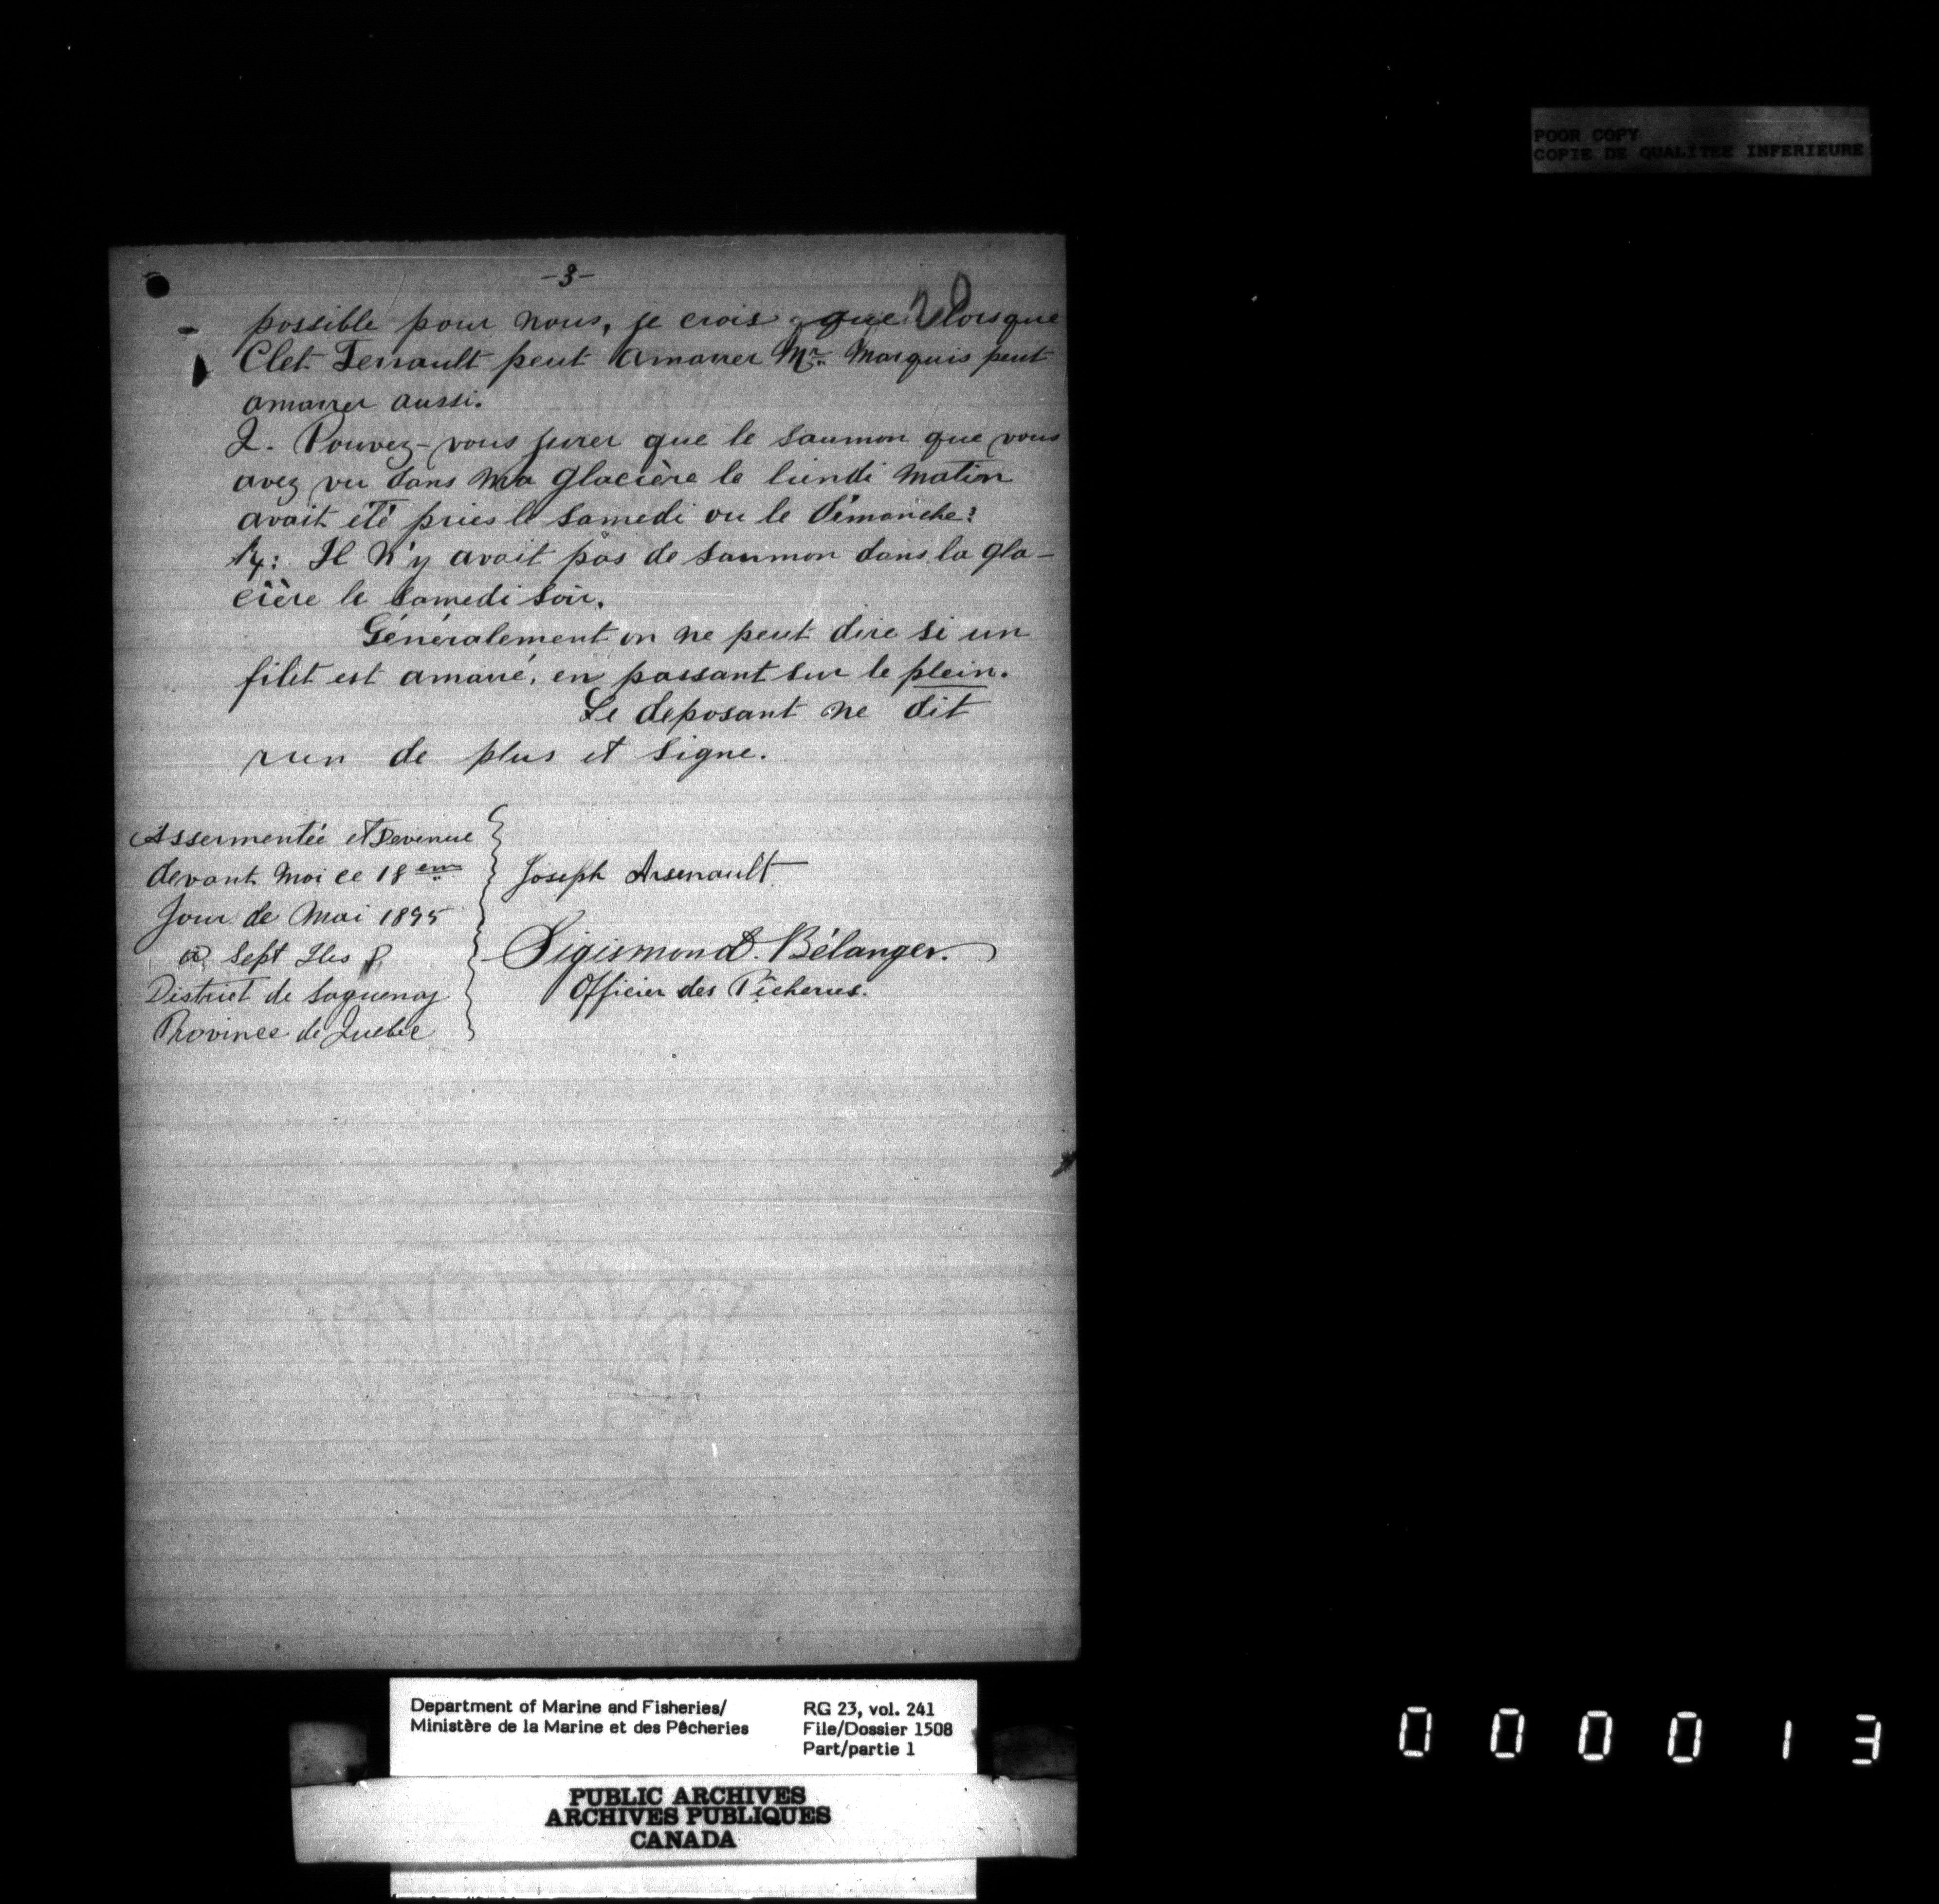 POOR COPY
COPIE DE QUALITEE INFERIEURE
-3-
20
possible pour nous, je crois que lorsque
Clet Terrault peut amarrer Mr. Marquis peut
amarrer aussi.
Q. Pouvez-vous jurer que le saumon que vous
avez vu dans ma glacière le lundi matin
avait été pries le samedi ou le Dimanche?
R: Il n'y avait pas de saumon dans la gla-
cière le samedi soir.
Généralement on ne peut dire si un
filet est amarré, en passant sur le plein.
Le deposant ne dit
rien de plus et signe.
Assermentée et Devenue
devant moi ce 18 eme
Jour de Mai 1895
à Sept Iles
District de Saguenay
Province de Quebec
Joseph Arsenault
Sigismond Bélanger.
Officier des Pêcheries.
Department of Marine and Fisheries/
Ministère de la Marine et des Pêcheries
RG 23, vol. 241
File/Dossier 1508
Part/partie 1
PUBLIC ARCHIVES
ARCHIVES PUBLIQUES
CANADA
000013